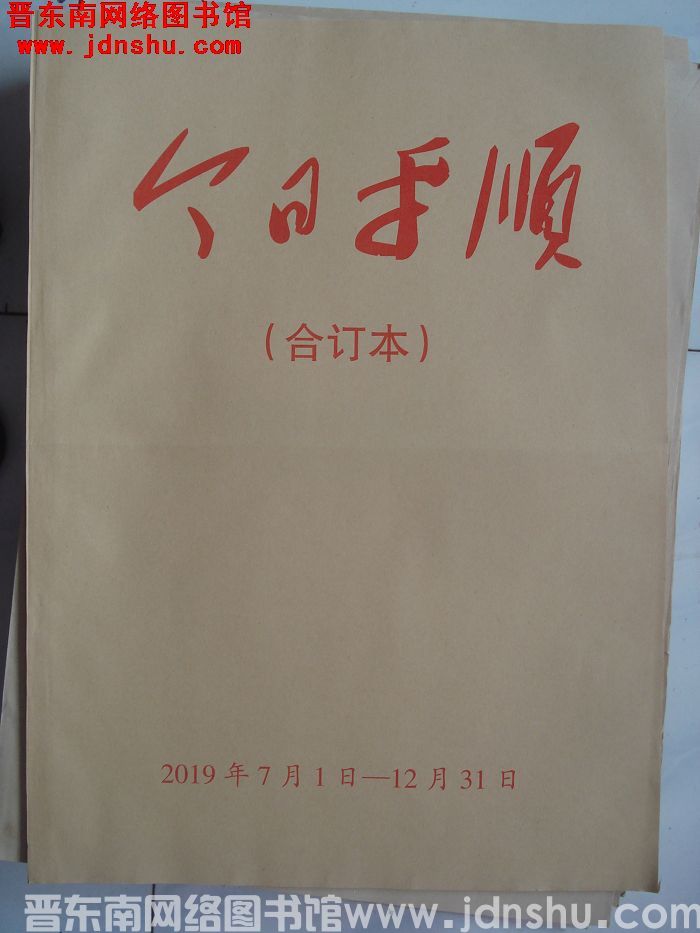 晋东南网络图书馆
www.jdnshu.com
今日平順
（合订本）
2019年7月1日—12月31日
晋东南网络图书馆www.jdnshu.com